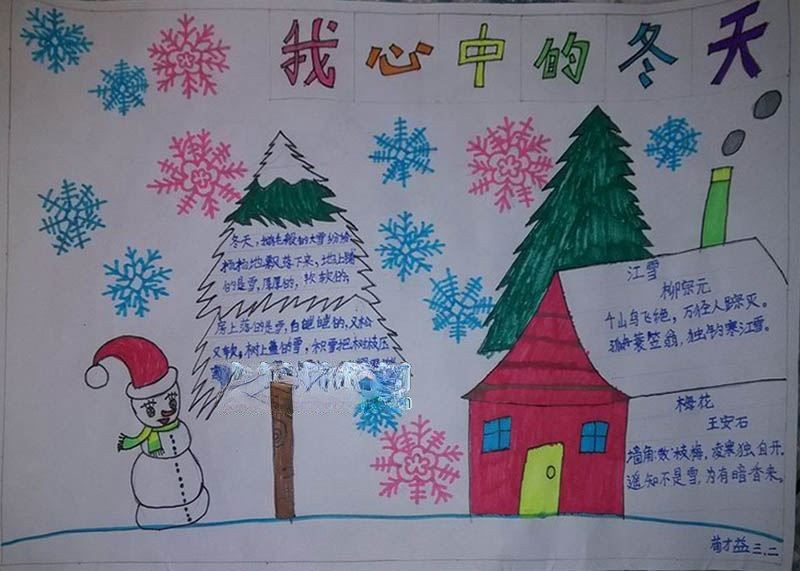 我心中的冬天
冬天,鹅毛般的大雪纷纷
扬扬地飘落下来,地上踏
的是雪,厚厚的,软软的;
房上落的是雪,白皑皑的,又松
又软;树上盖的雪,积雪把树枝压
江雪
柳宗元
千山鸟飞绝,万径人踪灭。
孤舟蓑笠翁,独钓寒江雪。
梅花
王安石
墙角数枝梅,凌寒独自开。
遥知不是雪,为有暗香来。
三.二